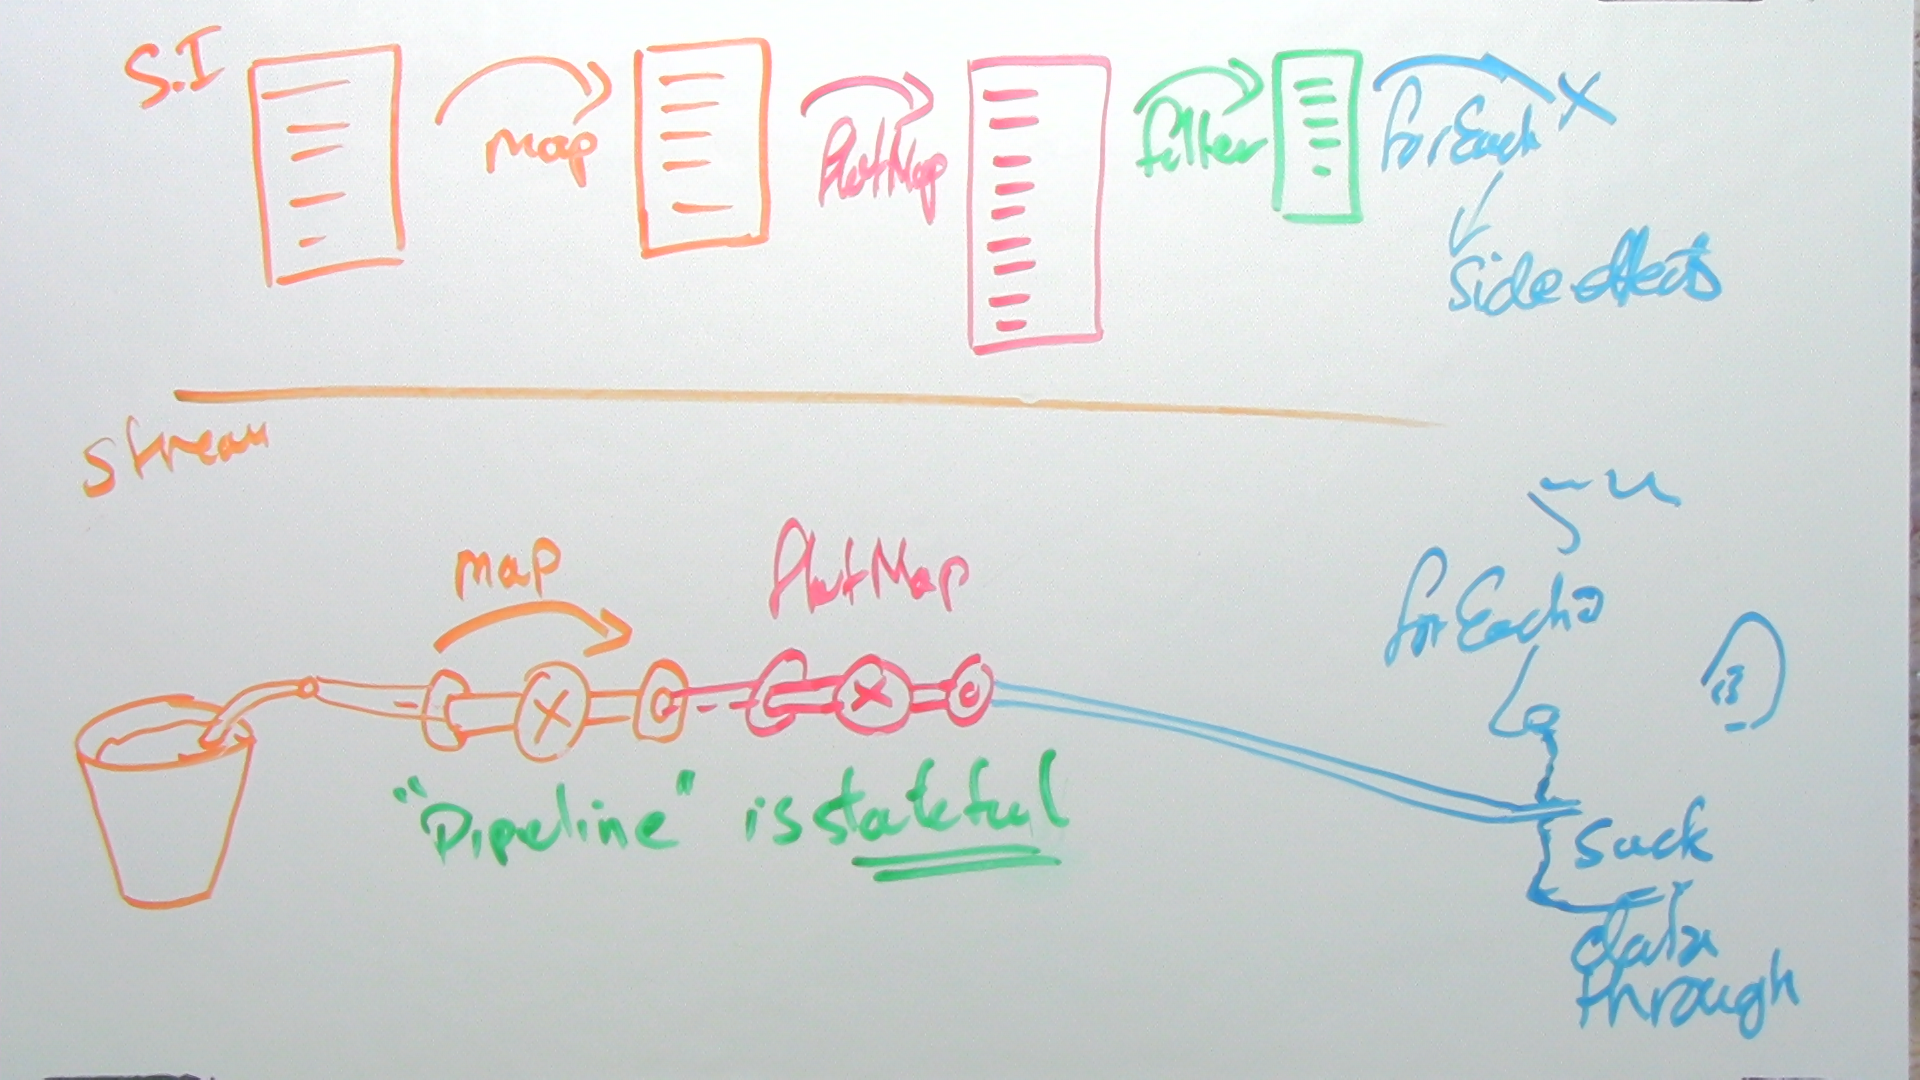 S.I
map
flatMap
filter
forEach
side effects
Stream
map
flatMap
forEach
"Pipeline" is stateful
suck
data
through